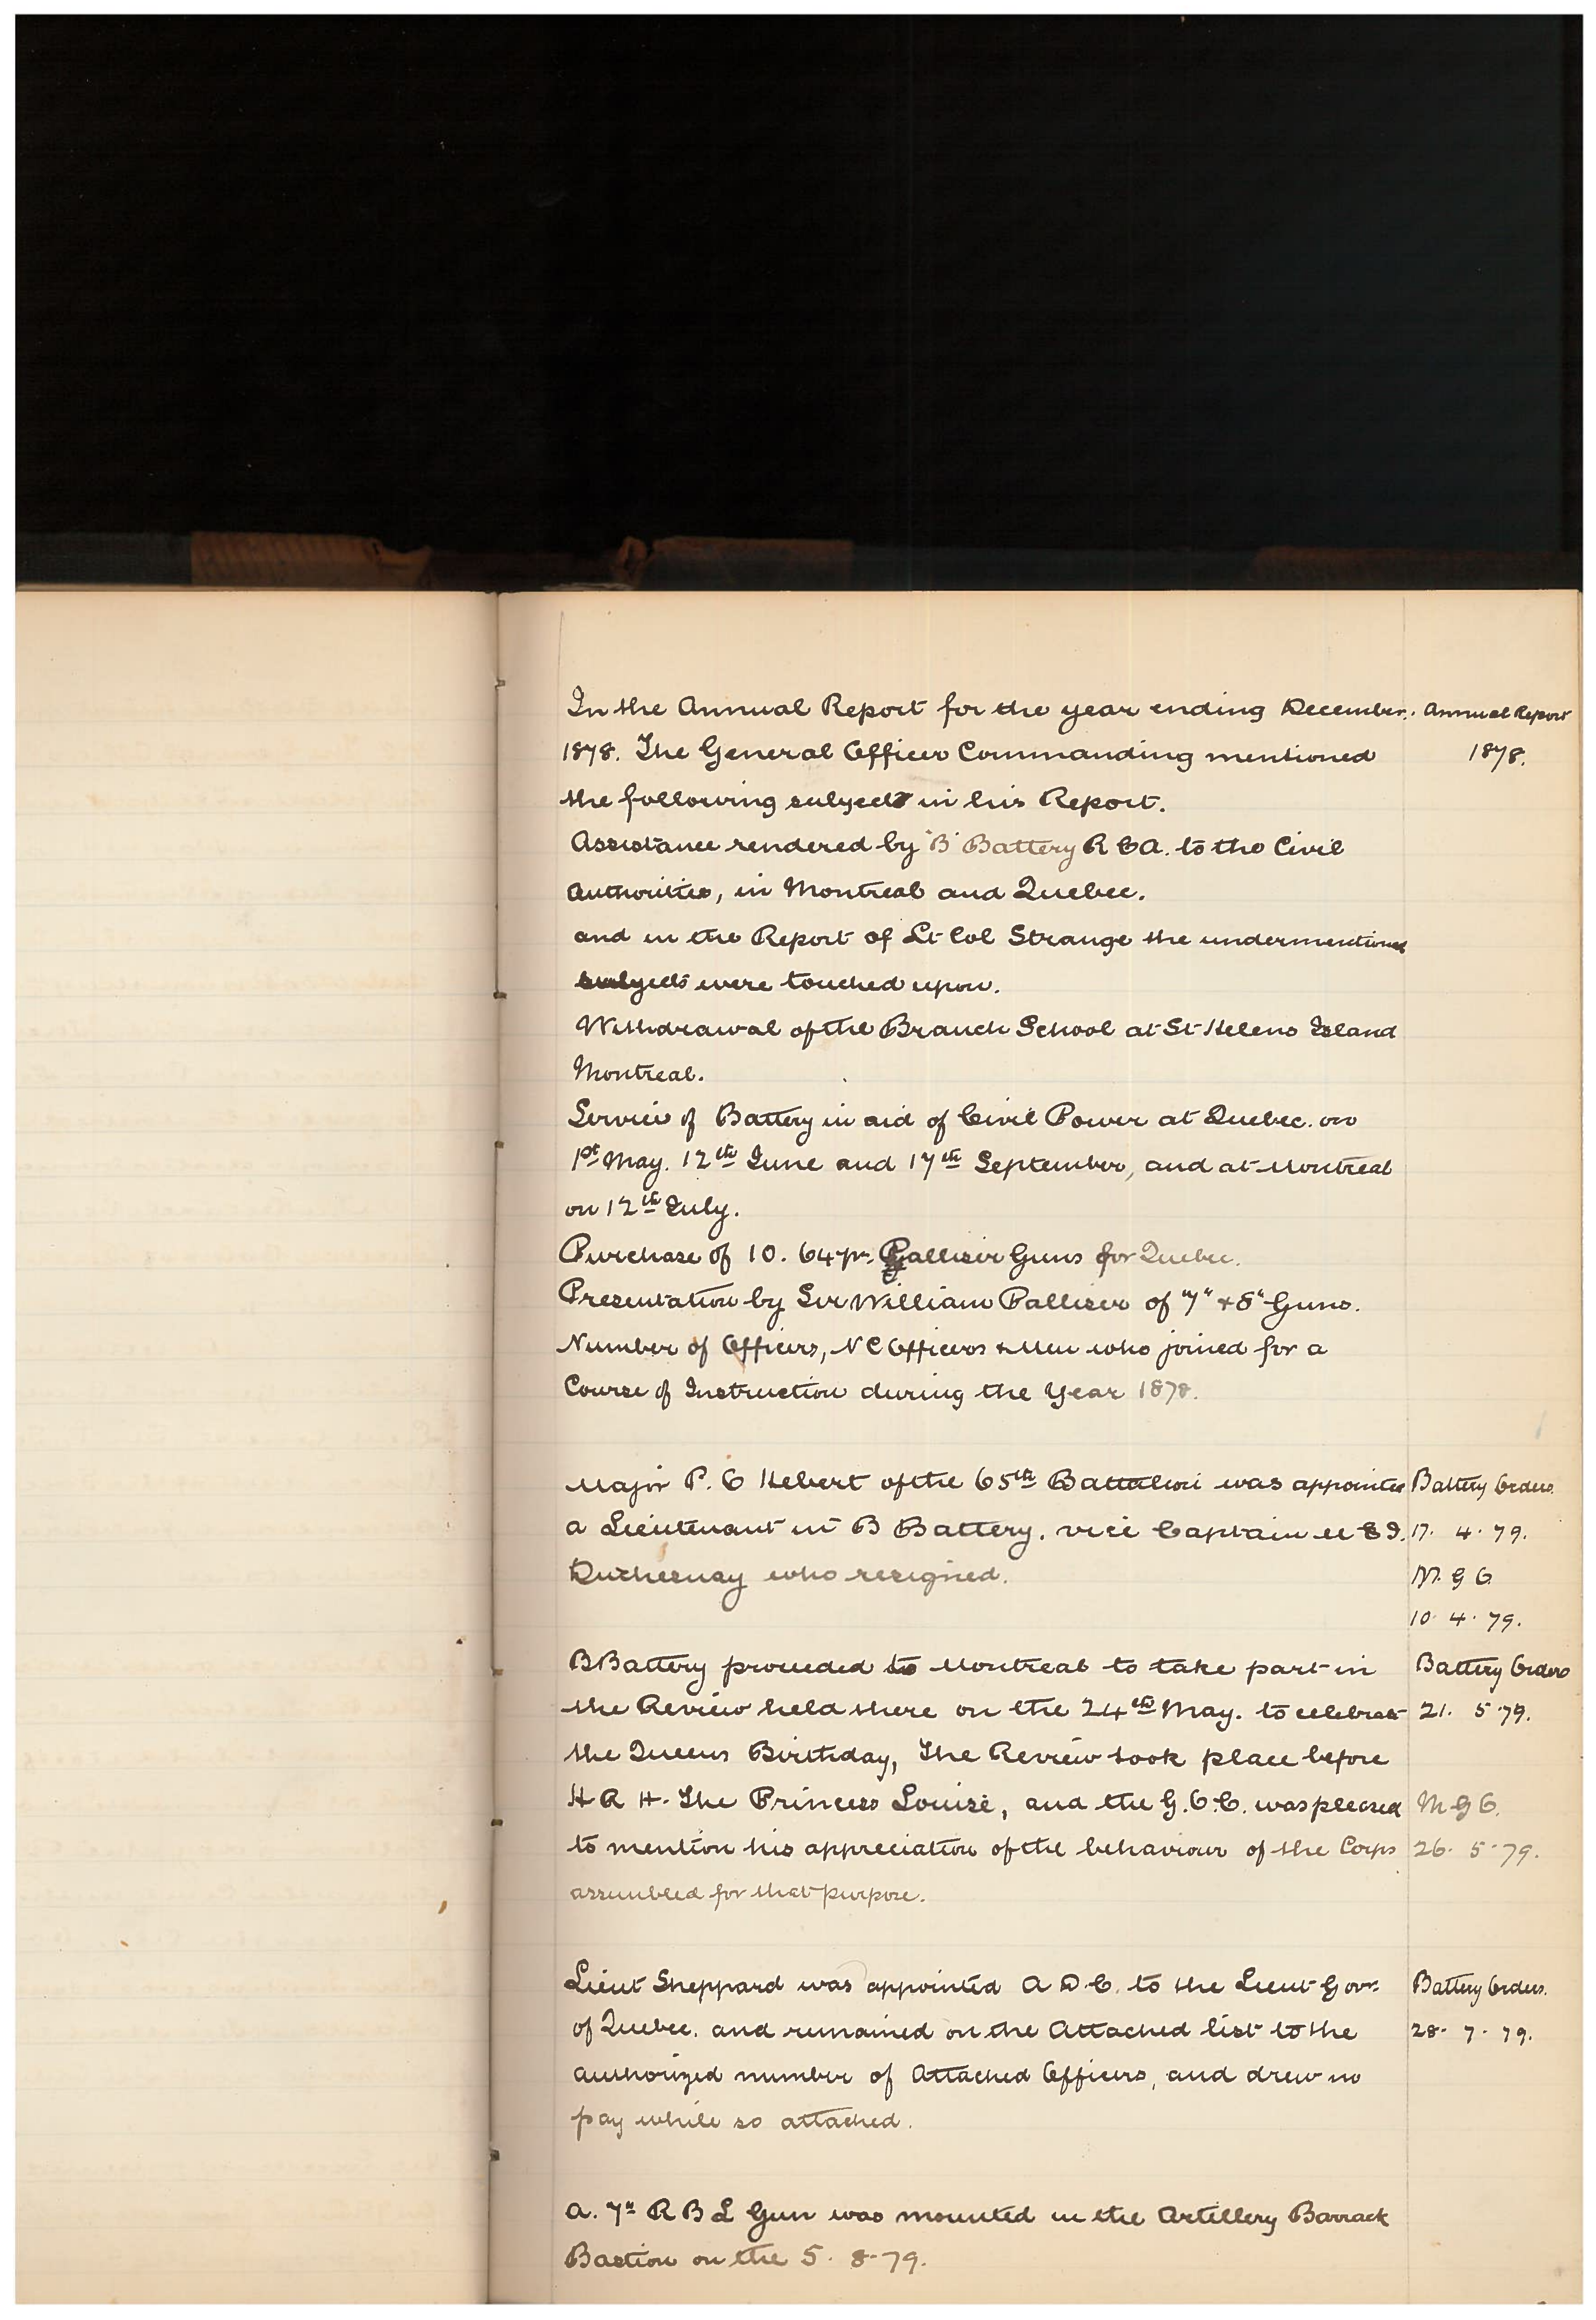 In the Annual Report for the year ending December. Annual Report
1878. The General Officer Commanding mentioned 1878.
the following subjects in his Report.
Assistance rendered by "B" Battery R C A. to the Civil
Authorities, in Montreal and Quebec.
and in the Report of Lt Col Strange the undermentioned
subjects were touched upon.
Withdrawal of the Branch School at St Helens Island
Montreal.
Service of Battery in aid of Civil Power at Quebec. on
1st May. 12th June and 17th September, and at Montreal
on 12th July.
Purchase of 10. 64 pr. Palliser Guns for Quebec.
Presentation by Sir William Palliser of 7" & 8" Guns.
Number of Officers, N C Officers & Men who joined for a
Course of Instruction during the Year 1878.
Major P. C Hebert of the 65th Battalion was appointed Battery Orders.
a Lieutenant in B Battery. vice Captain 17. 4. 79.
Duchesnay who resigned. M. G O
10. 4. 79.
B Battery proceeded to Montreal to take part in Battery Orders
the Review held there on the 24th May. to celebrate 21. 5. 79.
the Queens Birthday, The Review took place before
H R H. The Princess Louise, and the G.O.C. was pleased M G O.
to mention his appreciation of the behaviour of the Corps 26. 5. 79.
assembled for that purpose.
Lieut Sheppard was appointed A D C. to the Lieut Govr. Battery Orders.
of Quebec. and remained on the Attached list to the 28. 7. 79.
authorized number of Attached Officers, and drew no
pay while so attached.
A. 7" R B L Gun was mounted in the Artillery Barrack
Bastion on the 5. 8. 79.